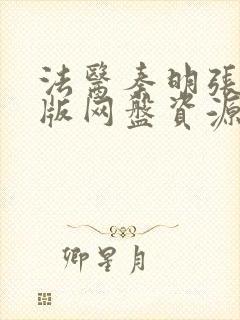 法醫秦明張
版网盤資源
卿星月